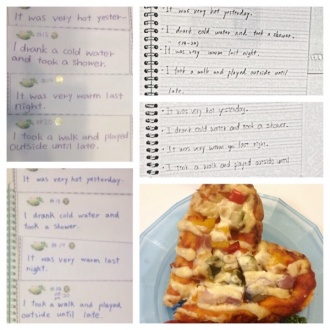 It was very hot yester-
I drank a cold water
and took a shower.
It was very warm last
night.
I took a walk and played
outside until late.
It was very hot yesterday.
I drank cold water and took a shower.
It was very warm last night.
I took a walk and played outside until
late.
It was very hot yesterday.
I drank cold water and took a shower.
It was very warm
I took a walk and played outside until
It was very hot yesterday.
I drank cold water and
took a shower.
It was very warm last
night.
I took a walk and played
outside until late.